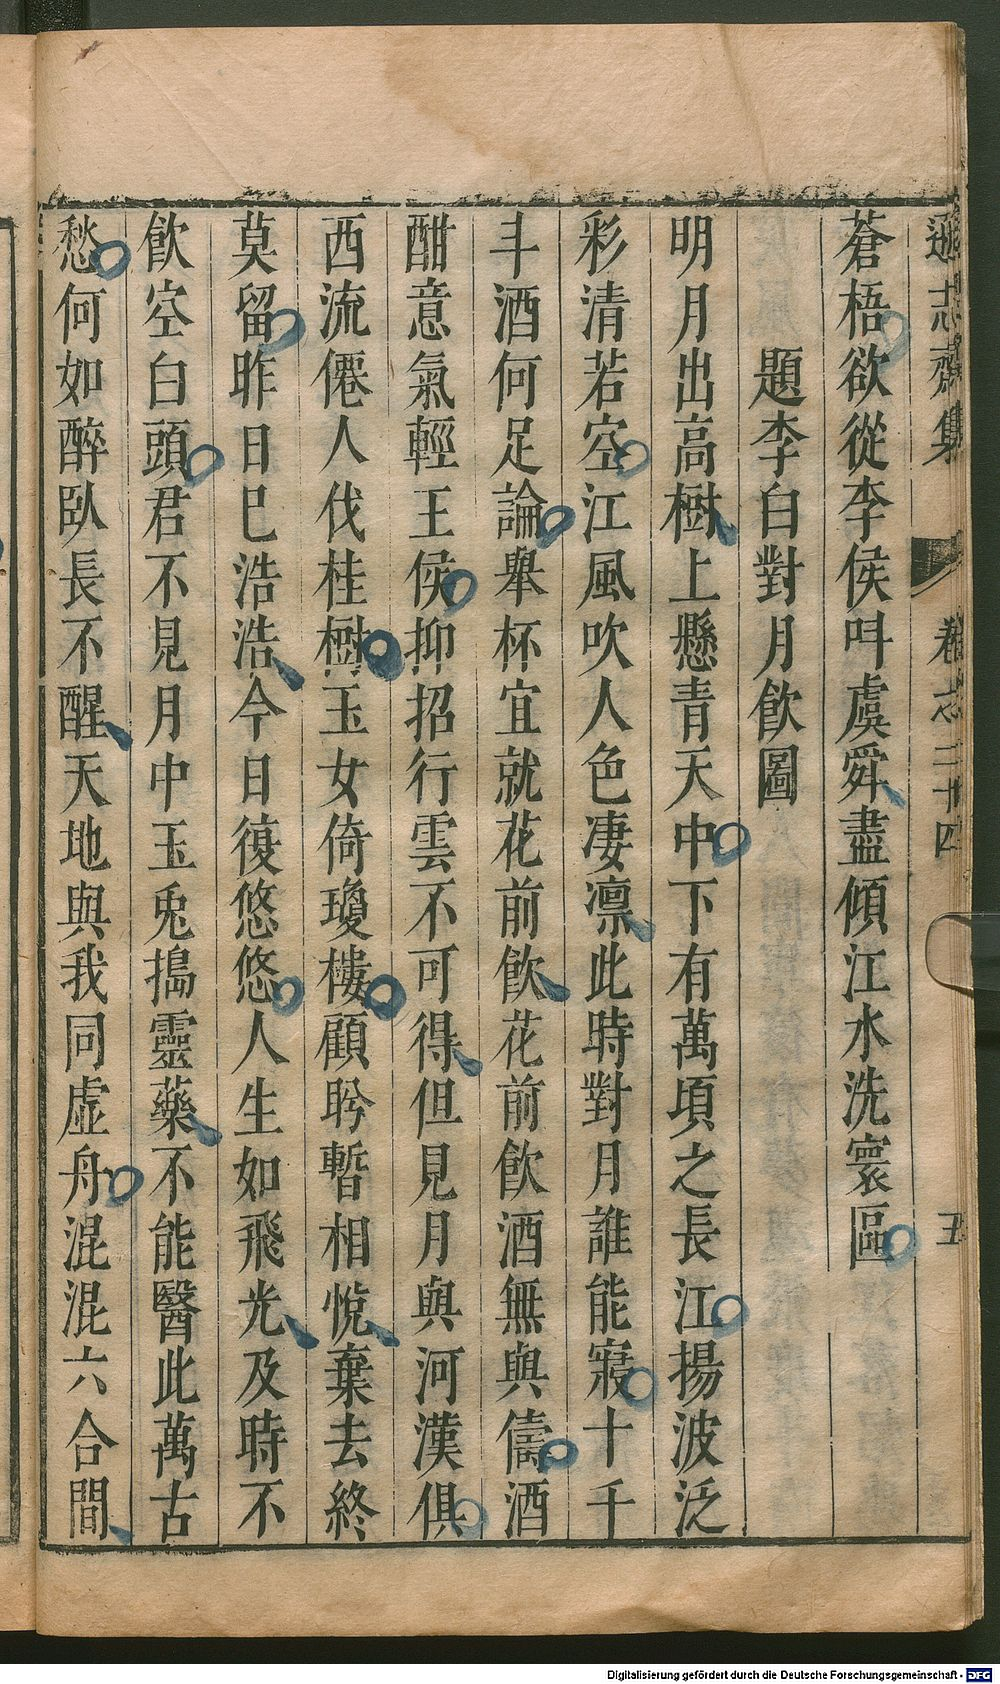 遜志齋集 卷之二十四 五
蒼梧欲從李侯呌虞舜盡傾江水洗寰區
題李白對月飲圖
明月出高樹上懸青天中下有萬頃之長江揚波泛
彩清若空江風吹人色凄凛此時對月誰能寢十千
斗酒何足論舉杯宜就花前飲花前飲酒無與儔酒
酣意氣輕王侯抑招行雲不可得但見月與河漢俱
西流僊人伐桂樹玉女倚瓊樓顧盻暫相悅棄去終
莫留昨日已浩浩今日復悠悠人生如飛光及時不
飲空白頭君不見月中玉兎搗靈藥不能醫此萬古
愁何如醉臥長不醒天地與我同虛舟混混六合間
Digitalisierung gefördert durch die Deutsche Forschungsgemeinschaft - DFG